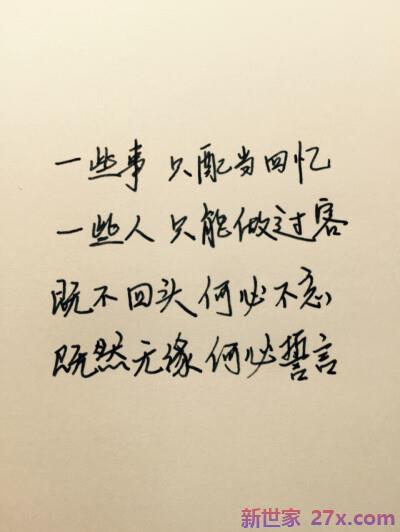 一些事 只配当回忆
一些人 只能做过客
既不回头 何必不忘
既然无缘 何必誓言
新世家 27x.com